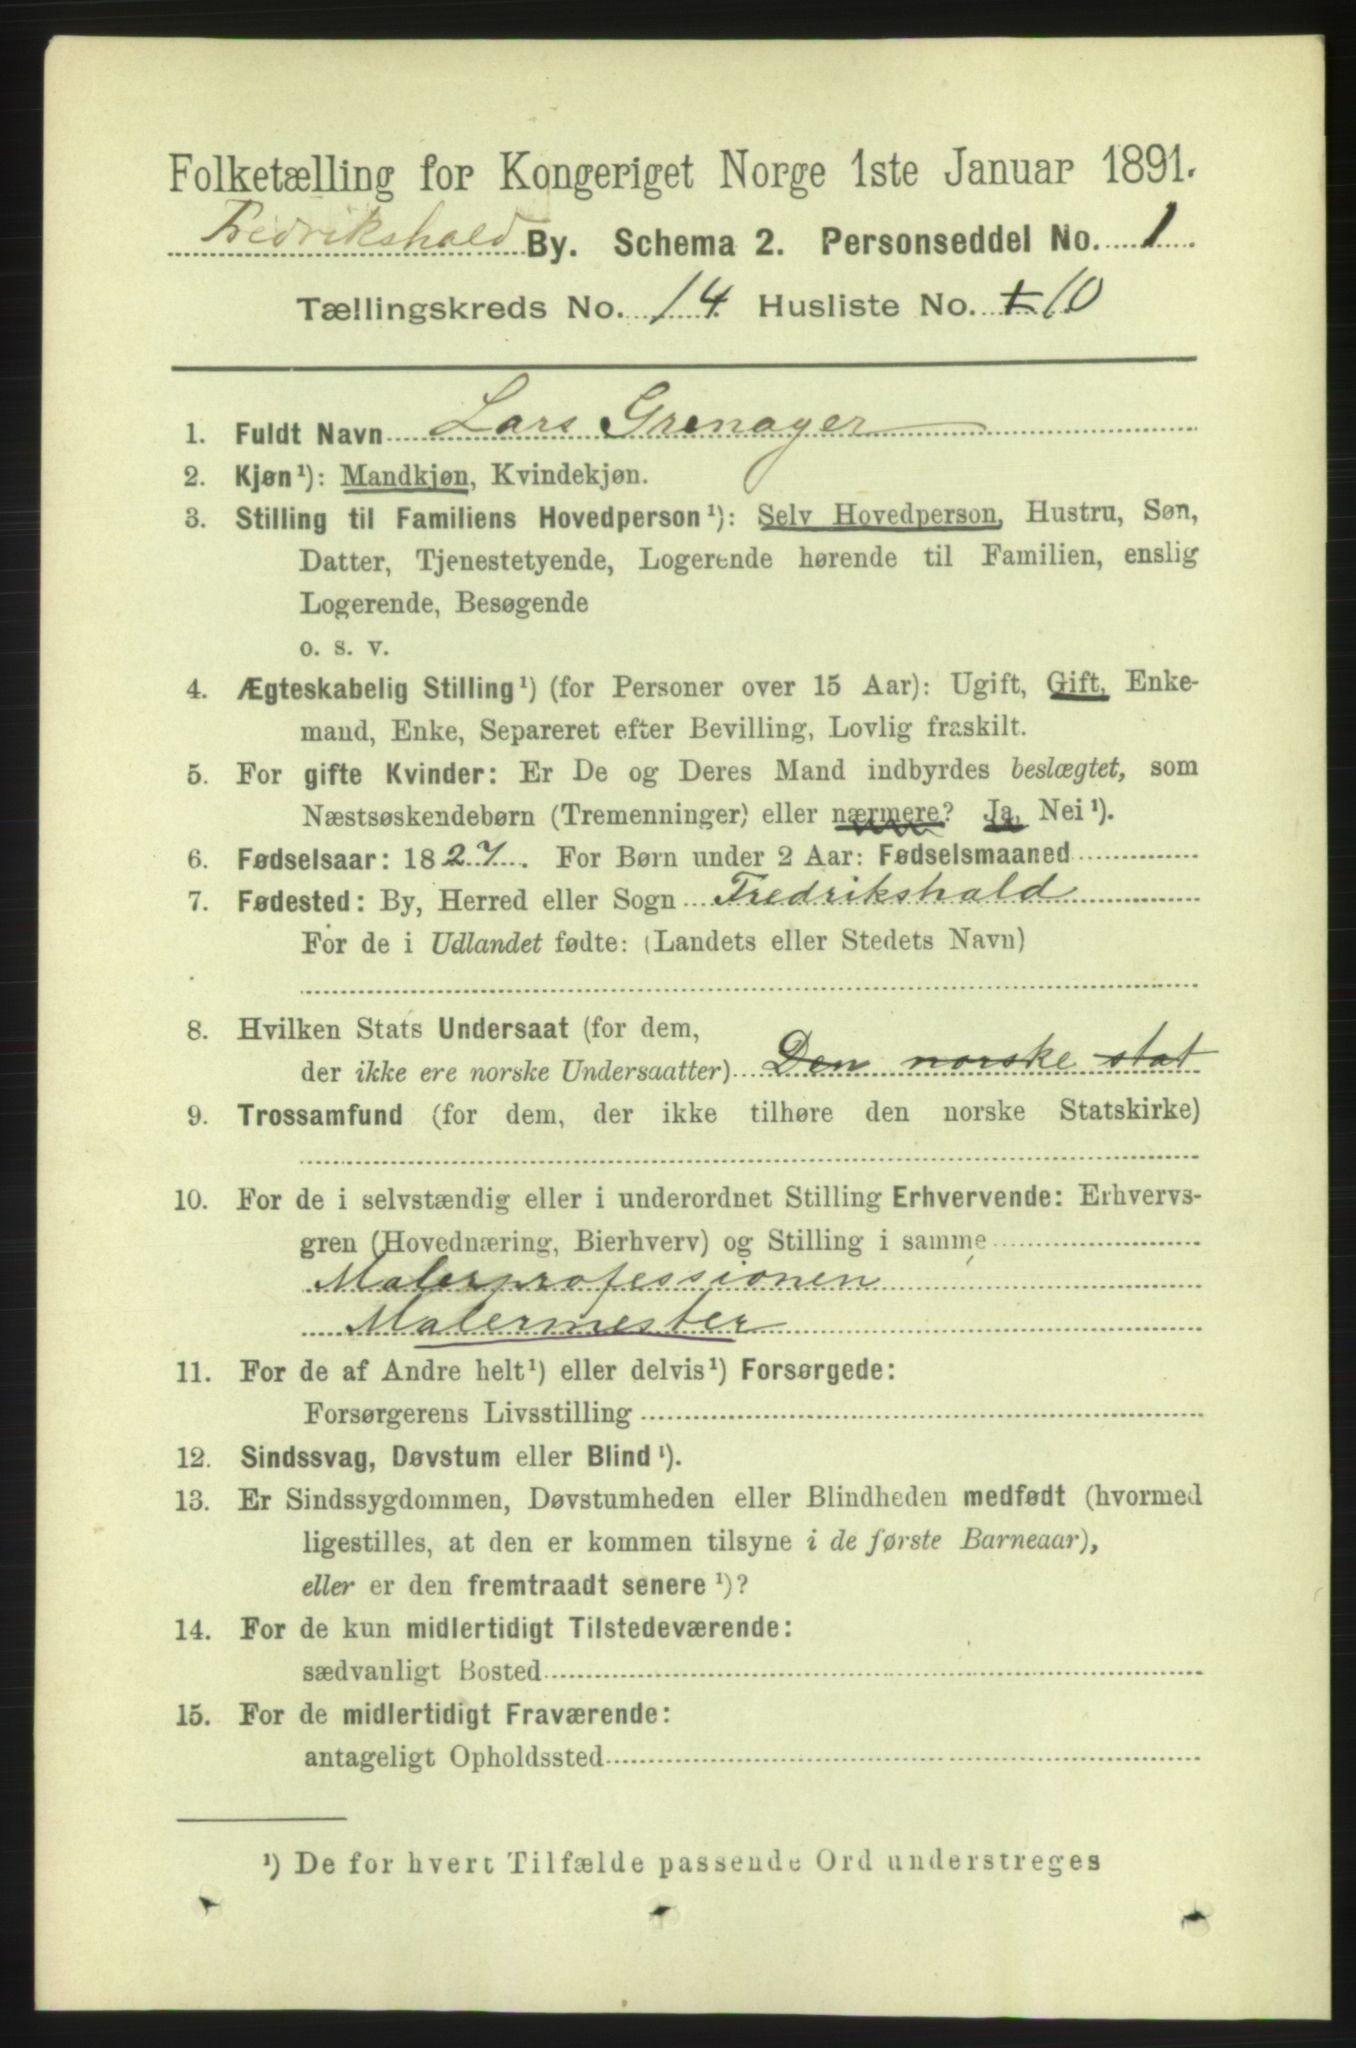 Folketælling for Kongeriget Norge 1ste Januar 1891.
Fredrikshald By. Schema 2. Personseddel No. 1.
Tællingskreds No. 14. Husliste No. 1 10
1. Fuldt Navn Lars Grenager
2. Kjøn¹): Mandkjøn, Kvindekjøn.
3. Stilling til Familiens Hovedperson¹): Selv Hovedperson, Hustru, Søn,
Datter, Tjenestetyende, Logerende hørende til Familien, enslig
Logerende, Besøgende
o. s. v.
4. Ægteskabelig Stilling¹) (for Personer over 15 Aar): Ugift, Gift, Enke-
mand, Enke, Separeret efter Bevilling, Lovlig fraskilt.
5. For gifte Kvinder: Er De og Deres Mand indbyrdes beslægtet, som
Næstsøskendebørn (Tremenninger) eller nærmere? Ja, Nei¹).
6. Fødselsaar: 1827. For Børn under 2 Aar: Fødselsmaaned
7. Fødested: By, Herred eller Sogn Fredrikshald
For de i Udlandet fødte: (Landets eller Stedets Navn)
8. Hvilken Stats Undersaat (for dem,
der ikke ere norske Undersaatter) Den norske stat
9. Trossamfund (for dem, der ikke tilhøre den norske Statskirke)
10. For de i selvstændig eller i underordnet Stilling Erhvervende: Erhvervs-
gren (Hovednæring, Bierhverv) og Stilling i samme
Malerprofessionen
Malermester
11. For de af Andre helt¹) eller delvis¹) Forsørgede:
Forsørgerens Livsstilling
12. Sindssvag, Døvstum eller Blind¹).
13. Er Sindssygdommen, Døvstumheden eller Blindheden medfødt (hvormed
ligestilles, at den er kommen tilsyne i de første Barneaar),
eller er den fremtraadt senere¹)?
14. For de kun midlertidigt Tilstedeværende:
sædvanligt Bosted
15. For de midlertidigt Fraværende:
antageligt Opholdssted
¹) De for hvert Tilfælde passende Ord understreges